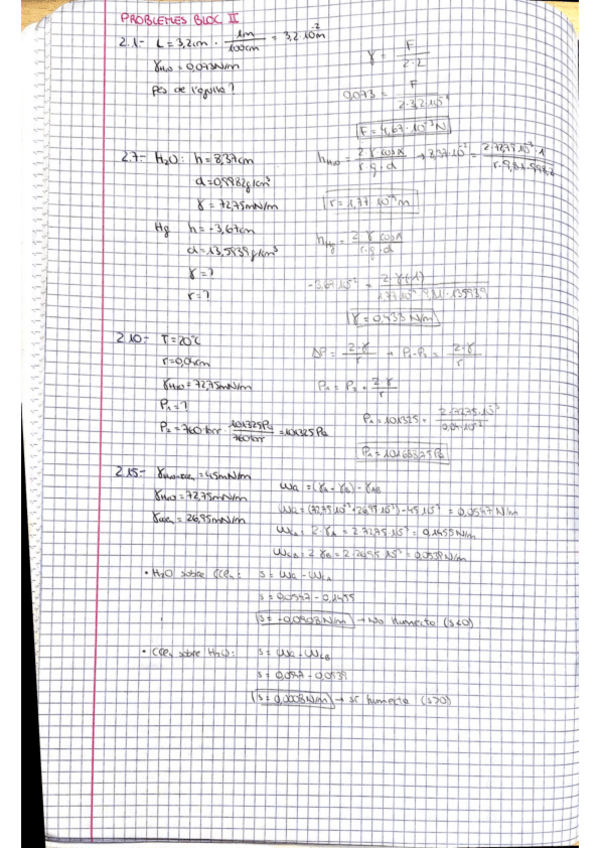 PROBLEMES BLOC II
2.1- L = 3,2cm · 1m/100cm = 3,2·10⁻²m
γH₂O = 0,073N/m
pes de l'agulla?
γ = F/2·L
0,073 = F/2·3,2·10⁻²
F = 4,67·10⁻³N
2.7- H₂O: h = 8,37cm
d = 0,9982g/cm³
γ = 72,75mN/m
Hg h = -3,67cm
d = 13,5939g/cm³
γ = ?
r = ?
hH₂O = 2γcosα/r·g·d → 8,37·10⁻² = 2·72,75·10⁻³·1/r·9,81·998,2
r = 1,77·10⁻⁴m
hHg = 2·γcosα/r·g·d
-3,67·10⁻² = 2·γ(-1)/1,77·10⁻⁴·9,81·13593,9
γ = 0,433 N/m
2.10- T = 20°C
r = 0,04cm
γH₂O = 72,75mN/m
P₁ = ?
P₂ = 760torr · 101325Pa/760torr = 101325Pa
ΔP = 2·γ/r → P₁-P₂ = 2·γ/r
P₁ = P₂ + 2·γ/r
P₁ = 101325 + 2·72,75·10⁻³/0,04·10⁻²
P₁ = 101688,75Pa
2.15- γH₂O-CCl₄ = 45mN/m
γH₂O = 72,75mN/m
γCCl₄ = 26,95mN/m
Wa = (γA + γB) - γAB
Wa = (72,75·10⁻³ + 26,95·10⁻³) - 45·10⁻³ = 0,0547 N/m
WcA = 2·γA = 2·72,75·10⁻³ = 0,1455N/m
WcB = 2·γB = 2·26,95·10⁻³ = 0,0539N/m
• H₂O sobre CCl₄: S = Wa - WcA
S = 0,0547 - 0,1455
S = -0,0908N/m → No humecta (S<0)
• CCl₄ sobre H₂O: S = Wa - WcB
S = 0,0547 - 0,0539
S = 0,0008N/m → sí humecta (S>0)